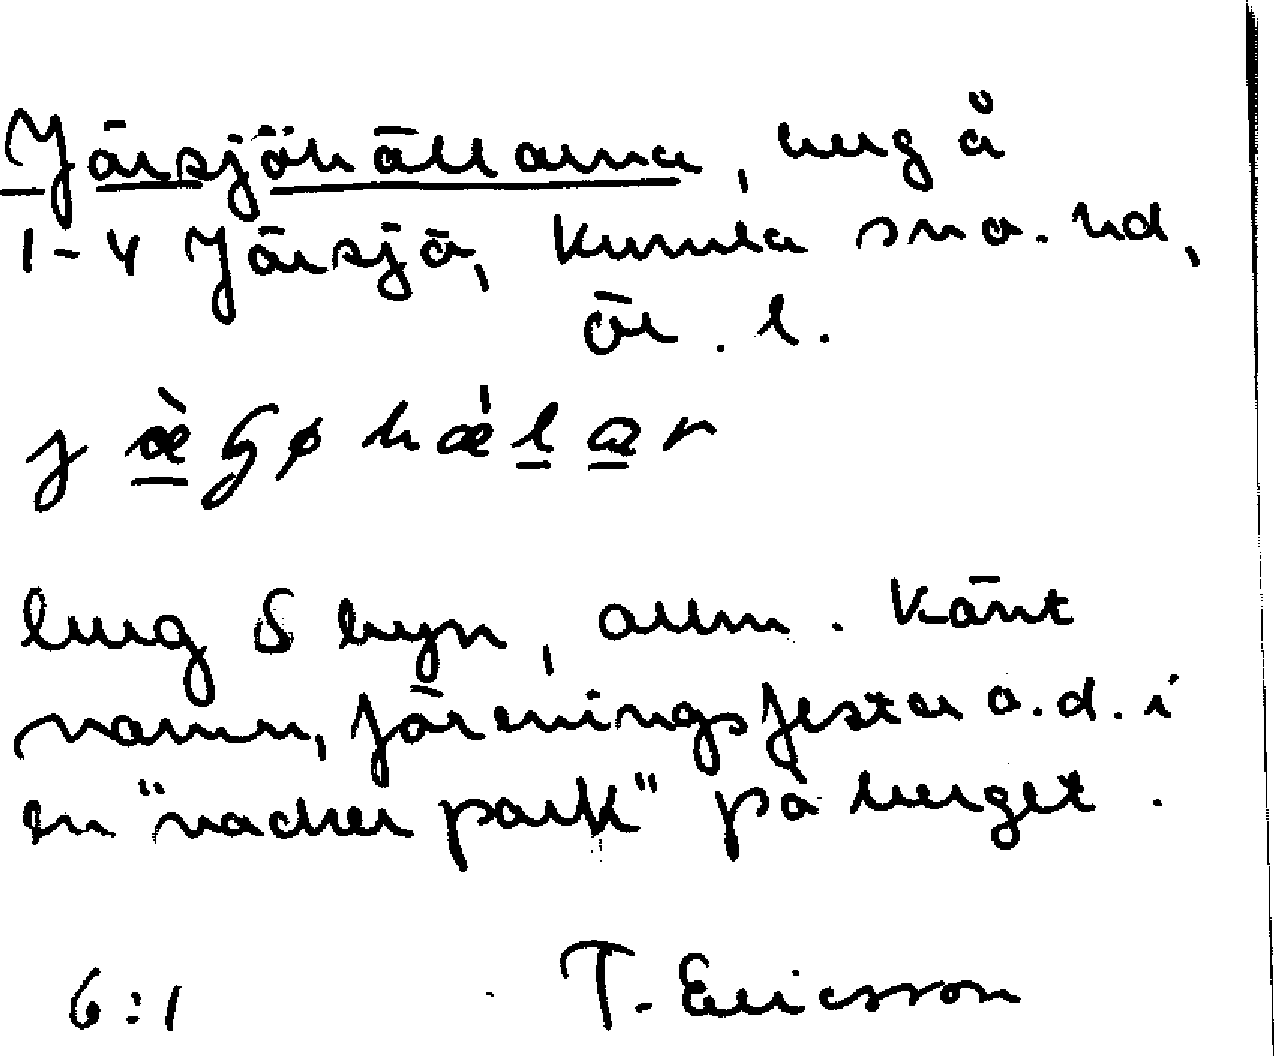 Järsjöhällarna, berg å
1-4 Järsjö, Kumla sn o. hd,
Ör. l.
jæ̀ʂøhǽlar
berg S byn, allm. känt
namn, föreningsfester o.d. i
en "vacker park" på berget.
6:1 T. Ericsson